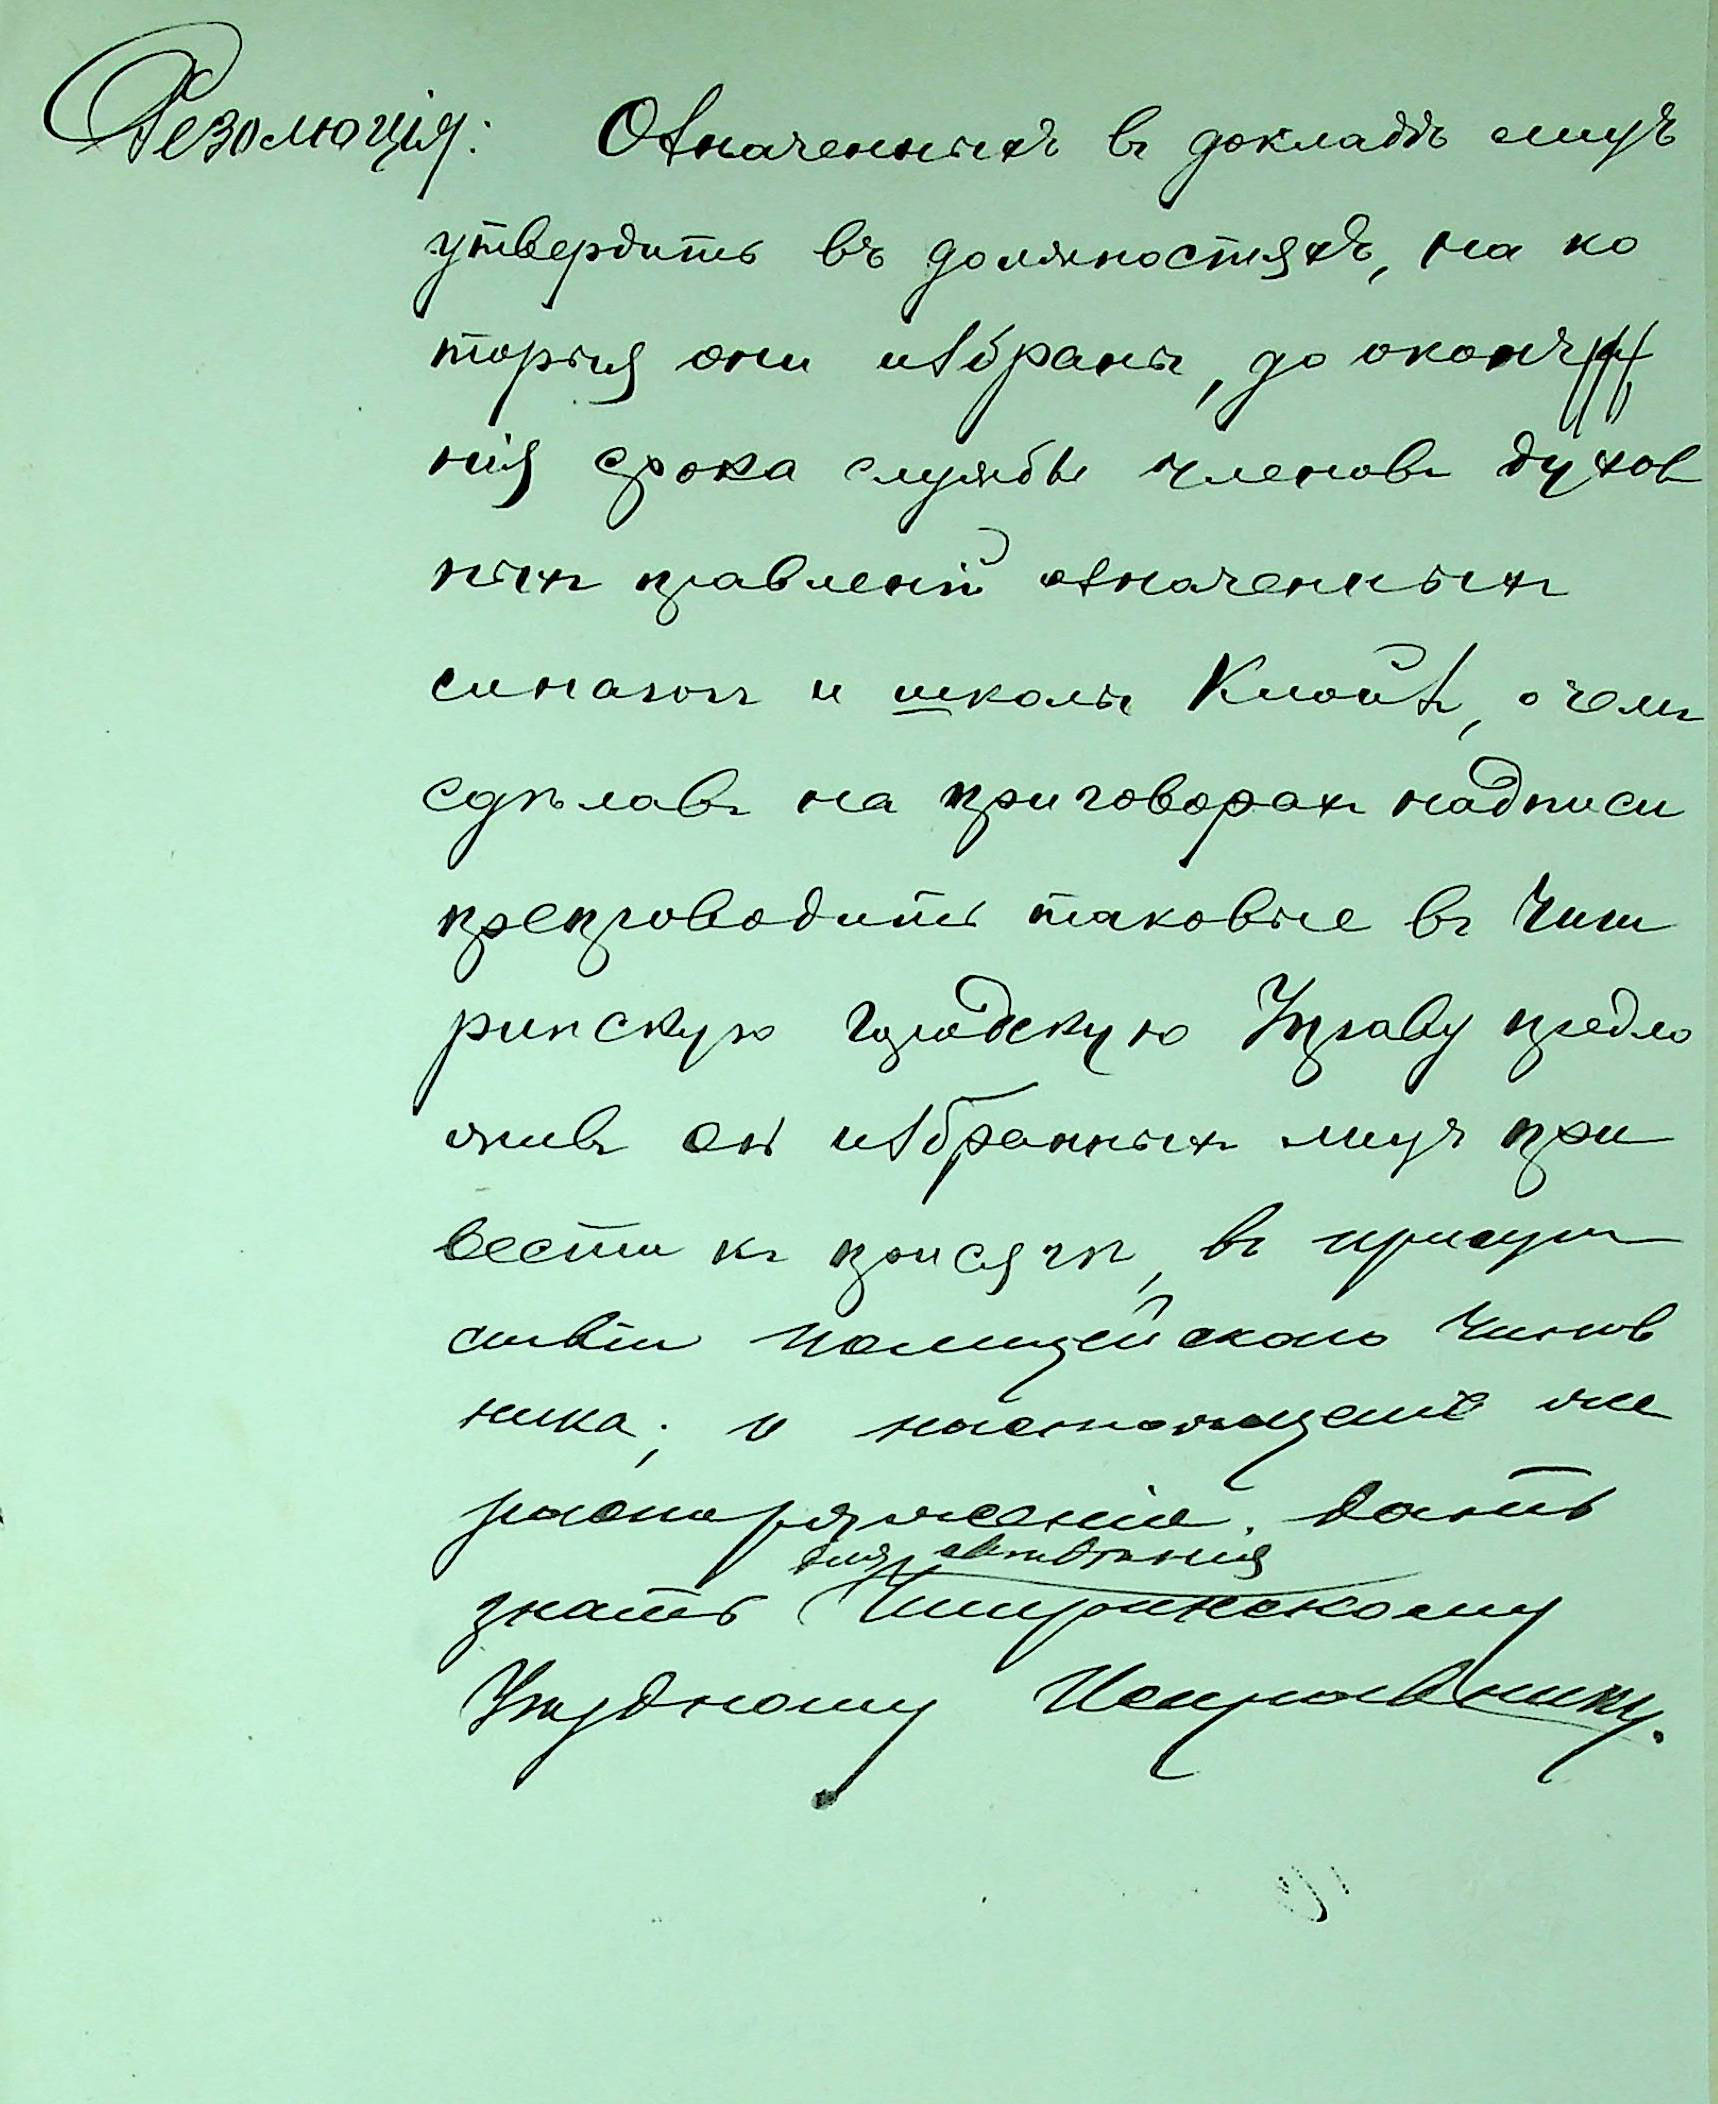 Резолюція: Означенныхъ въ докладѣ лицъ
утвердить въ должностяхъ, на ко
торыя они избраны, до оконча
нія срока службы членовъ духов
ныхъ правленій означенныхъ
синагогъ и школы Клойзъ, о чемъ
сдѣлавъ на приговорахъ надписи
препроводить таковые въ Чиги
ринскую Городскую Управу предло
живъ ей избранныхъ лицъ при
вести къ присягѣ, въ присут
ствіи полицейскаго чинов
ника; о настоящемъ же
распоряженіи дать
для свѣдѣнія
знать Чигиринскому
Уѣздному Исправнику.